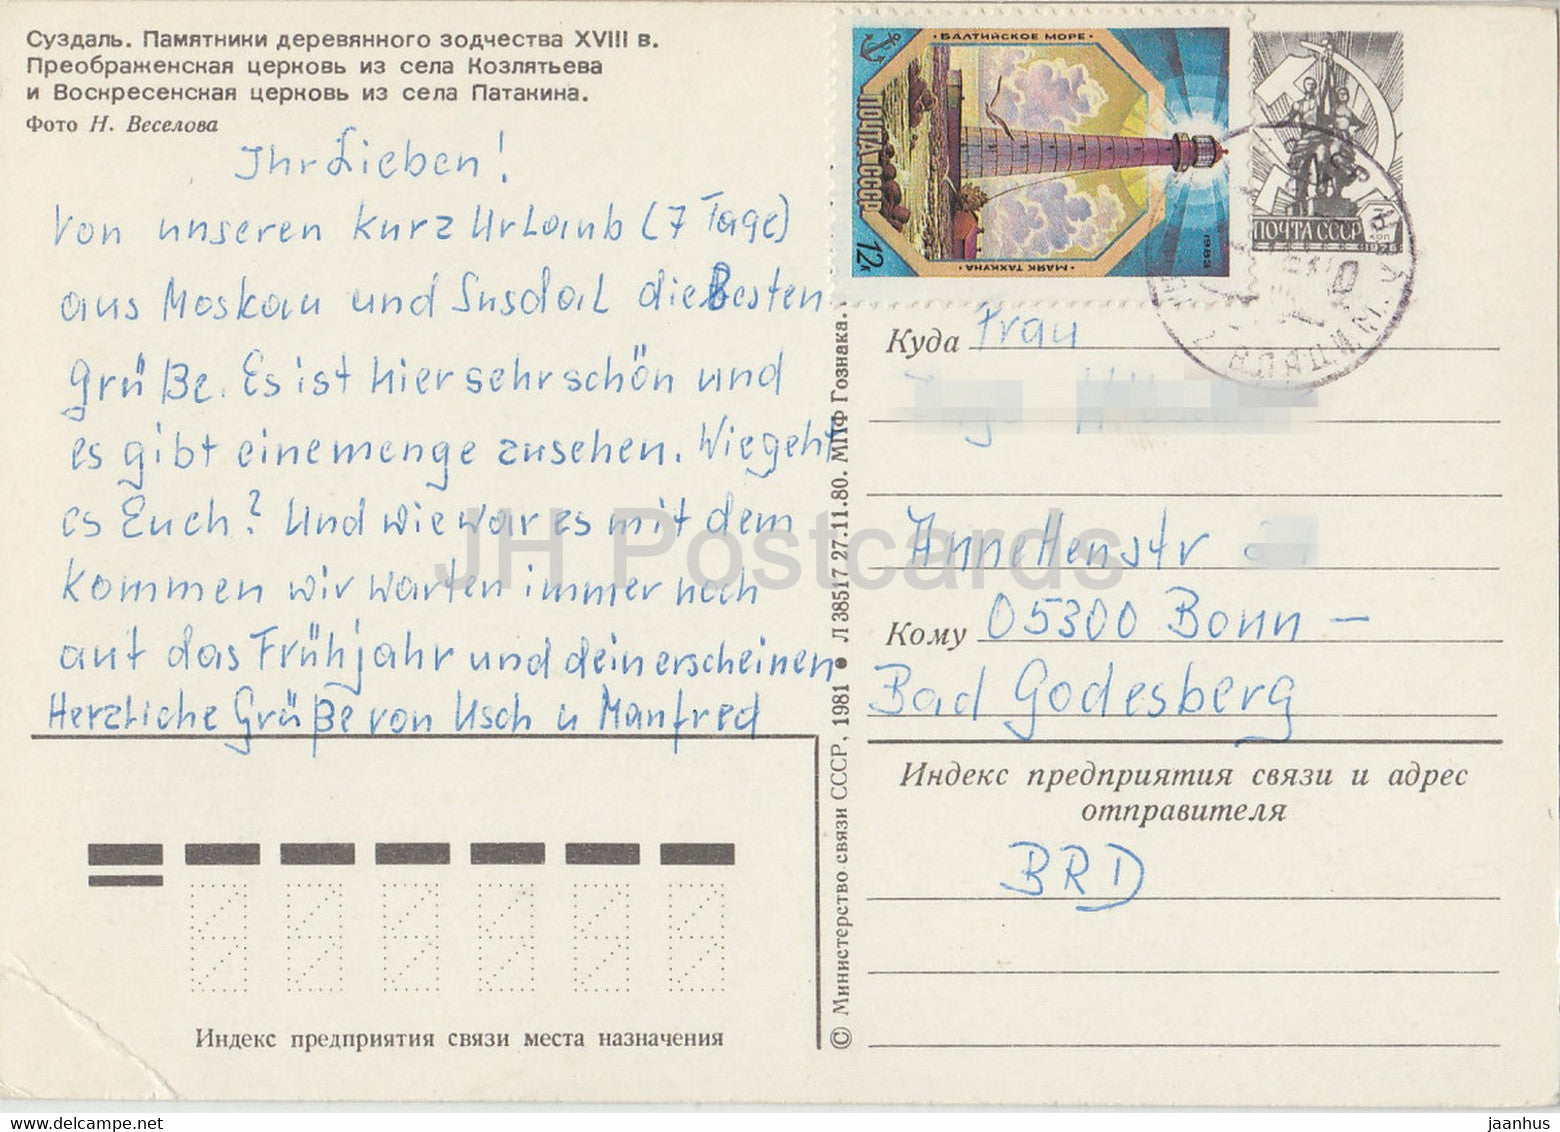 Суздаль. Памятники деревянного зодчества XVIII в.
Преображенская церковь из села Козлятьева
и Воскресенская церковь из села Патакина.
Фото Н. Веселова
Ihr Lieben!
Von unseren kurz Urlaub (7 Tage)
aus Moskau und Susdal die Besten
Grüße. Es ist hier sehr schön und
es gibt eine menge zu sehen. Wie geht
es Euch? Und wie war es mit dem
kommen wir warten immer noch
auf das Frühjahr und dein erscheinen
Herzliche Grüße von Usch u Manfred
Индекс предприятия связи места назначения
© Министерство связи СССР, 1981 • Л 38517 27.11.80. МПФ Гознака.
БАЛТИЙСКОЕ МОРЕ
ПОЧТА СССР
12к
МАЯК ТАХКУНА
1983
ПОЧТА СССР
КОП
1976
Куда Frau
Annettenstr
Кому 05300 Bonn –
Bad Godesberg
Индекс предприятия связи и адрес
отправителя
BRD
JH Postcards
jaanhus